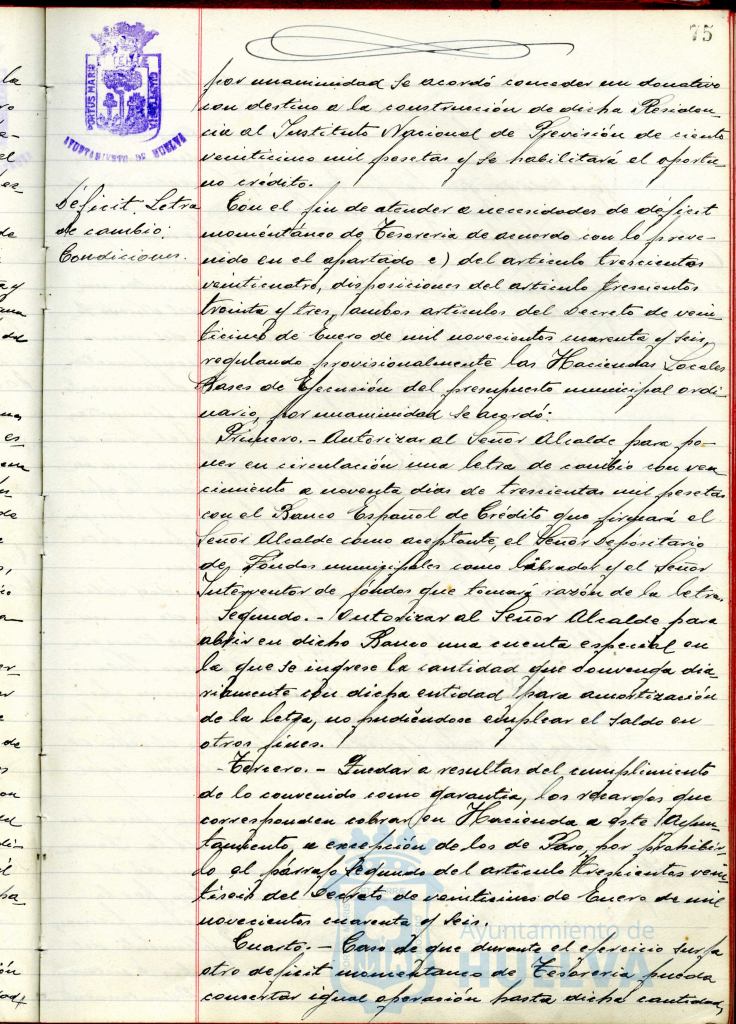 75
PORTUS MARIS ET TERRE CUSTODIA
AYUNTAMIENTO DE HUELVA
por unanimidad se acordó conceder un donativo
con destino a la construcción de dicha Residen-
cia al Instituto Nacional de Previsión de ciento
veinticinco mil pesetas y se habilitará el oportu-
no crédito.
Déficit. Letra
de cambio.
Condiciones.
Con el fin de atender a necesidades de déficit
momentáneo de Tesorería de acuerdo con lo preve-
nido en el apartado e) del artículo trescientos
veinticuatro, disposiciones del artículo trescientos
treinta y tres, ambos artículos del Decreto de vein-
ticinco de Enero de mil novecientos cuarenta y seis,
regulando provisionalmente las Haciendas Locales
Bases de Ejecución del presupuesto municipal ordi-
nario, por unanimidad se acordó:
Primero.- Autorizar al Señor Alcalde para po-
ner en circulación una letra de cambio con ven-
cimiento a noventa días de trescientas mil pesetas
con el Banco Español de Crédito que firmará el
Señor Alcalde como aceptante, el Señor Depositario
de Fondos municipales como librador y el Señor
Interventor de fondos que tomará razón de la letra.
Segundo.- Autorizar al Señor Alcalde para
abrir en dicho Banco una cuenta especial en
la que se ingrese la cantidad que convenga dia-
riamente con dicha entidad para amortización
de la letra, no pudiéndose emplear el saldo en
otros fines.
Tercero.- Quedar a resultas del cumplimiento
de lo convenido como garantía, los recargos que
corresponden cobrar en Hacienda a este Ayun-
tamiento, a excepción de los de Paro, por prohibir-
lo el párrafo segundo del artículo trescientos vein-
tiseis del Decreto de veinticinco de Enero de mil
novecientos cuarenta y seis.
Cuarto.- Caso de que durante el ejercicio surja
otro deficit momentaneo de Tesorería pueda
concertar igual operación hasta dicha cantidad,
Ayuntamiento de
HUELVA